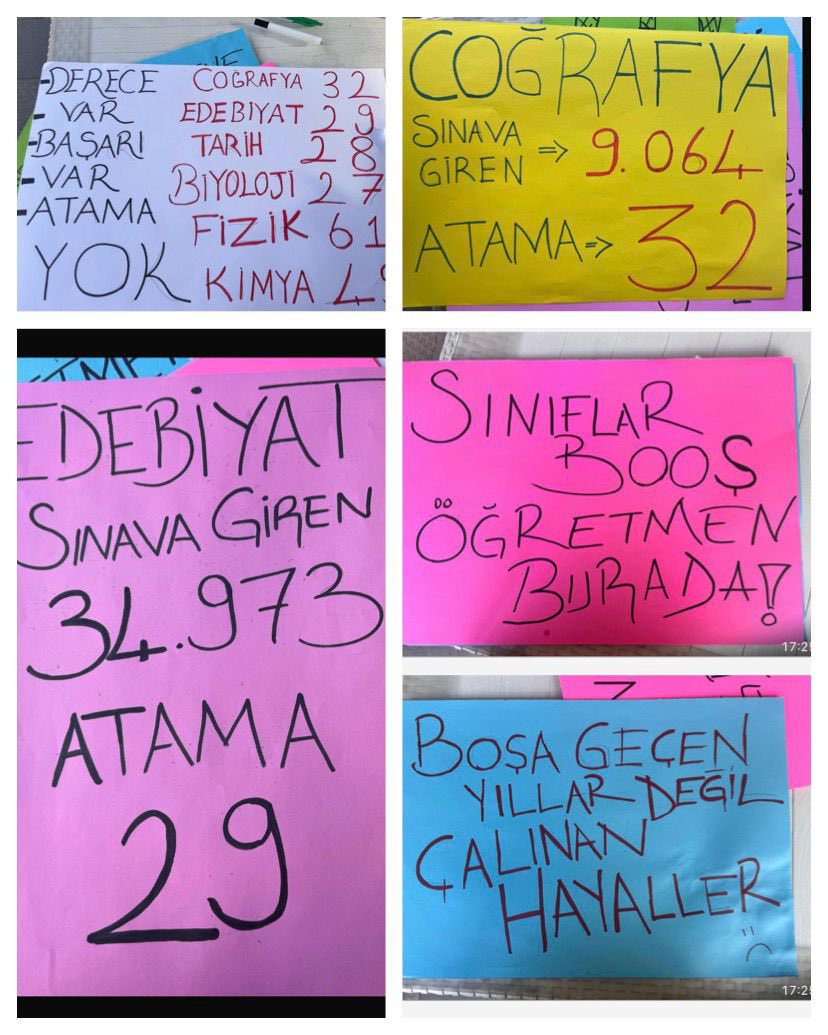 -DERECE
- VAR
-BAŞARI
- VAR
-ATAMA
YOK
COĞRAFYA 32
EDEBİYAT 29
TARİH 28
BİYOLOJİ 27
FİZİK 61
KİMYA
COĞRAFYA
SINAVA
GİREN => 9.064
ATAMA=> 32
EDEBİYAT
SINAVA GİREN
34.973
ATAMA
29
SINIFLAR
BOOŞ
ÖĞRETMEN
BURADA!
17:25
BOŞA GEÇEN
YILLAR DEĞİL
ÇALINAN
HAYALLER
:(
17:25